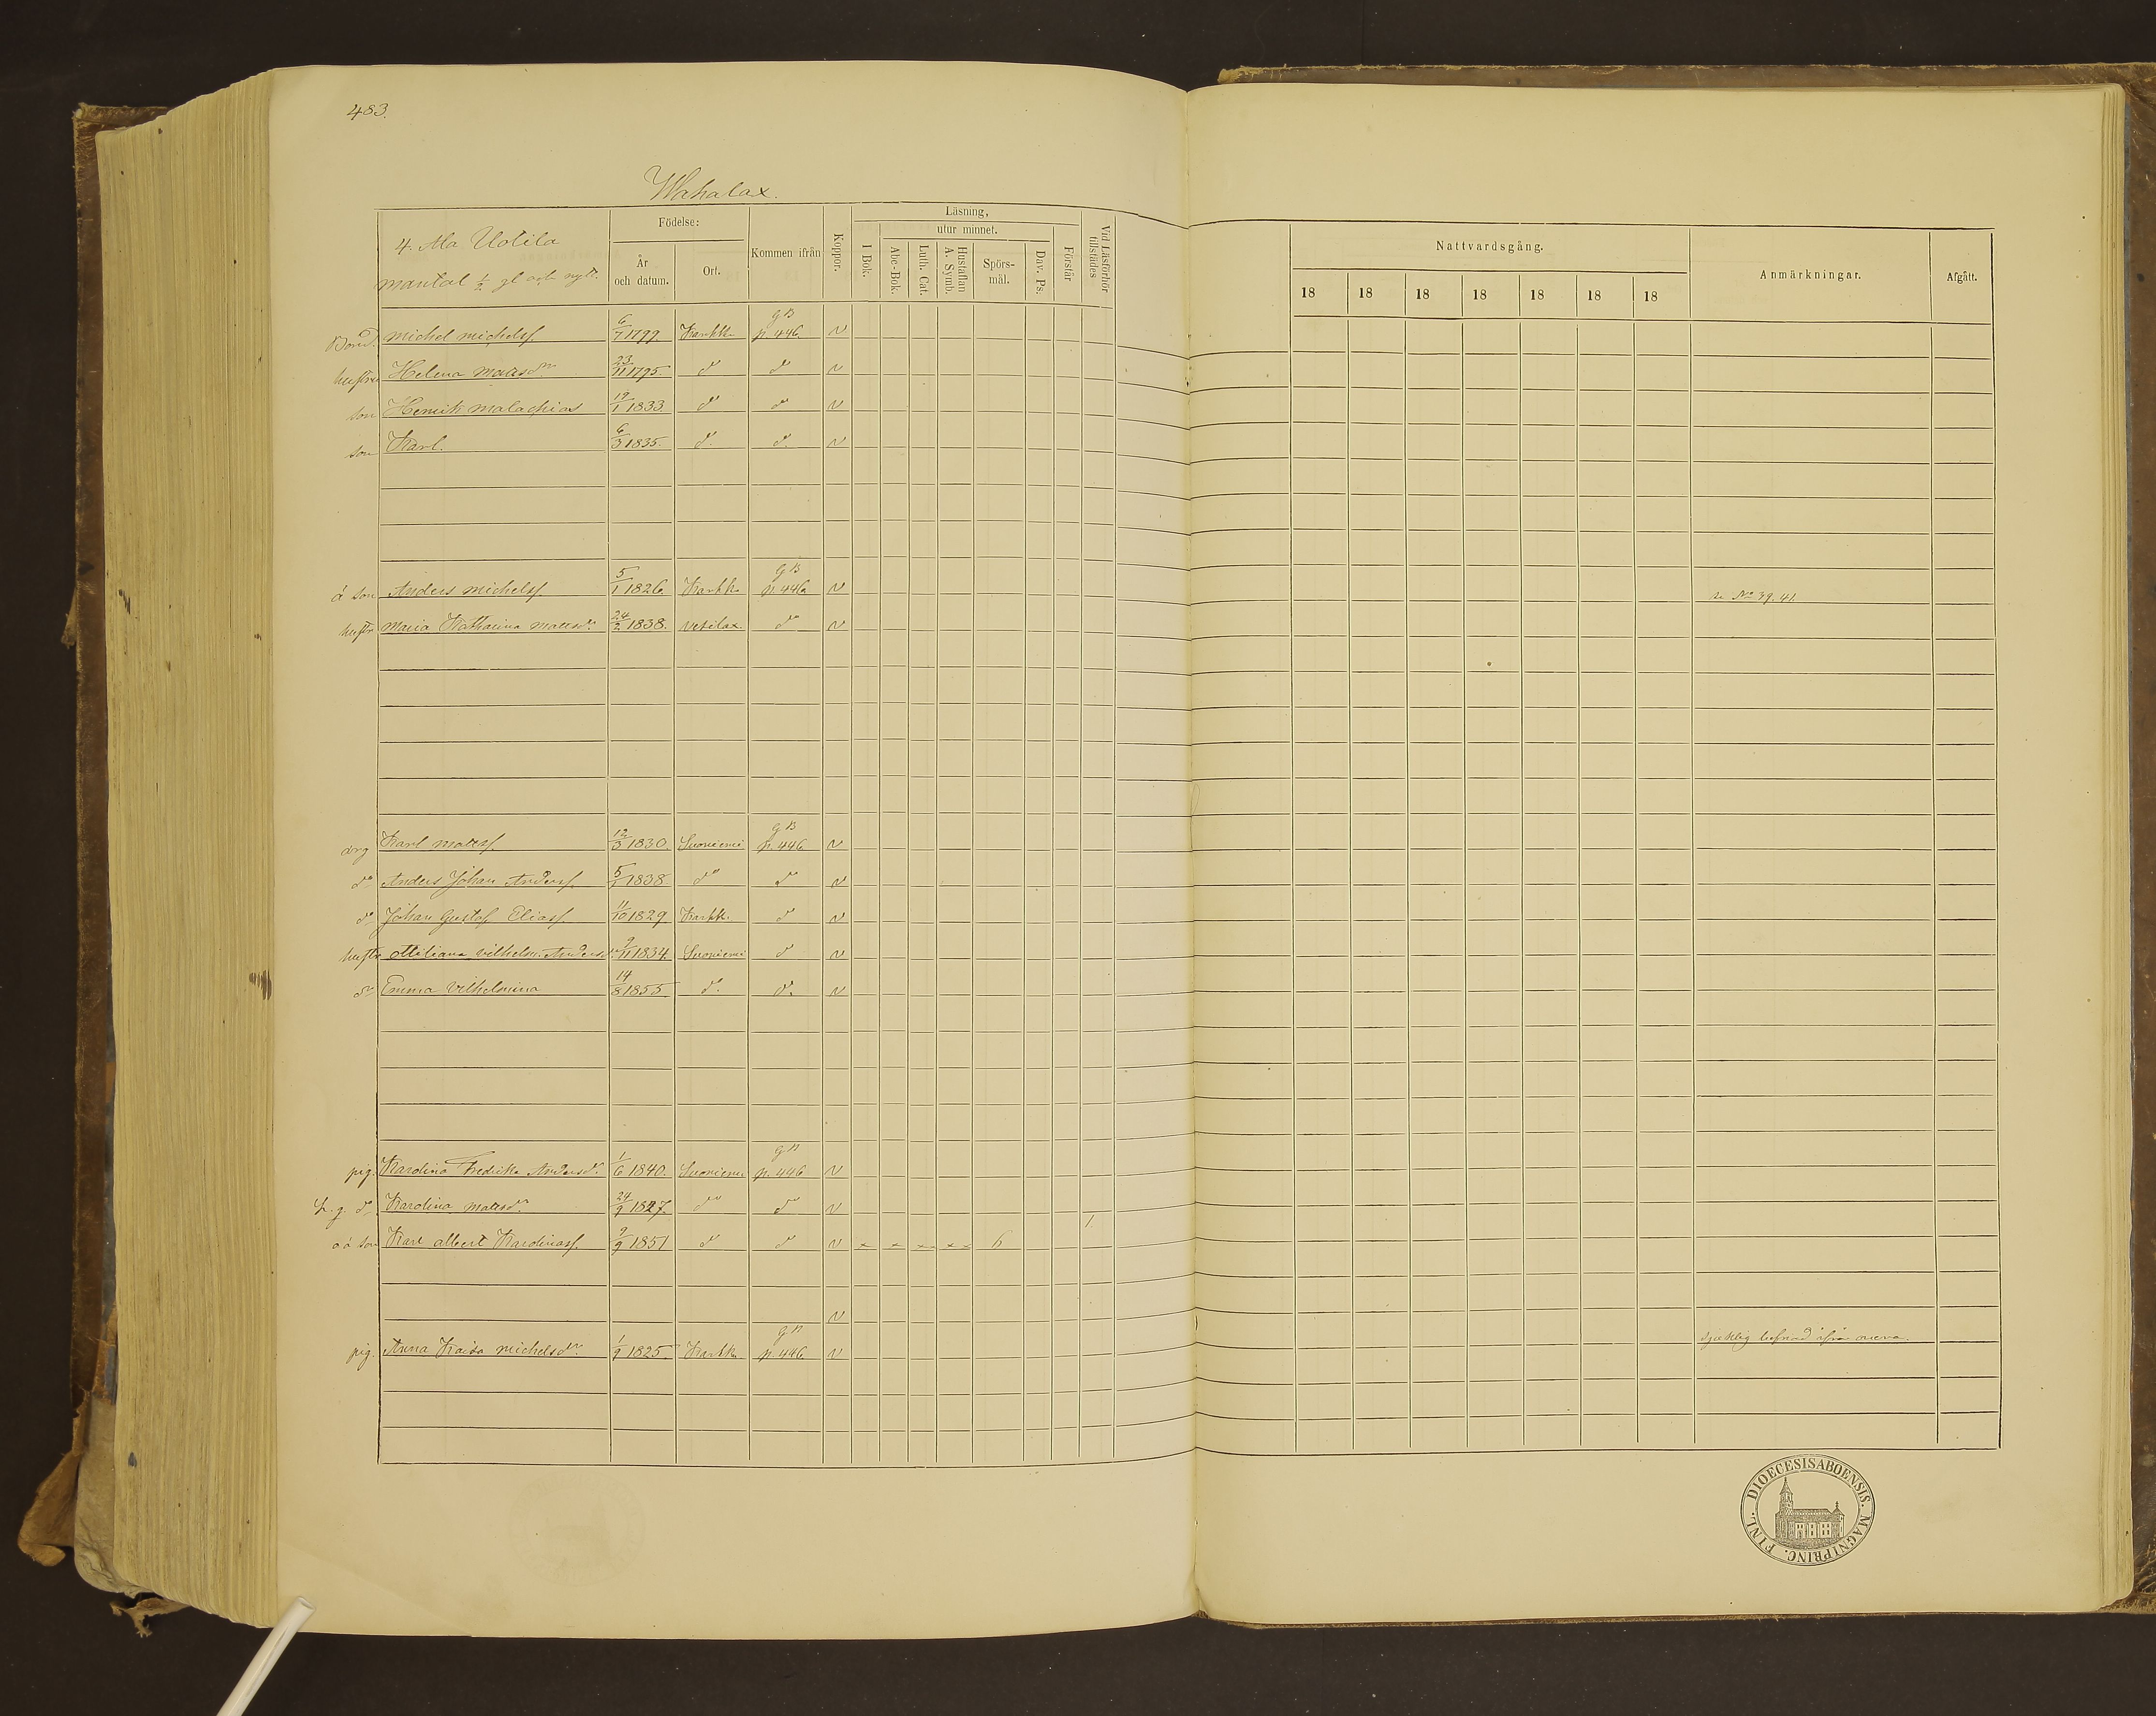 483.
Wahalax.
4. Ala Uotila
mantal 1/2 gl och nytt.
Födelse:
År och datum.
Ort.
Kommen ifrån
Koppor.
Läsning,
utur minnet.
I Bok.
Abc-Bok.
Luth. Cat.
Hustaflan A. Symb.
Spörs-mål.
Dav. Ps.
Förstår
Vid Läsförhör tillstädes
Nattvardsgång.
18 18 18 18 18 18 18
Anmärkningar.
Afgått.
Bond. Michel Michelss. 6/7 1799. Karkk. GB p. 446. v
hustru Helena Matsdr 23/11 1795. do do v
son Henrik Malachias 19/1 1833. do do v
son Karl. 6/3 1835. do do v
å son Anders Michelss. 5/1 1826. Karkk. GB p. 446. v se No 39. 41.
hustr Maria Katharina Matsdr. 24/2 1838. Vesilax. do v
drg Karl Matss. 12/3 1830. Suoniemi GB p. 446. v
do Anders Johan Anderss. 5/1 1838 do do v
do Johan Gustaf Eliass. 11/10 1829 Karkk. do v
hustr Ottiliana Vilhelm. Andersdr 9/11 1834. Suoniemi do v
dr Emma Vilhelmina 14/8 1855 do. do. v
pig. Karolina Fredrika Andersdr. 1/6 1840. Suoniemi GB p. 446 v
L. g. do Karolina Matsdr. 24/9 1827 do do v
oä son Karl Albert Karolinass. 9/9 1851 do do v x x xx xx 6 1.
v
pig. Anna Kaisa Michelsdr. 1/9 1825. Karkk. GB p. 446 v befriad ifrån
DIOECESIS ABOENSIS. MAGNI PRINC. FINL.